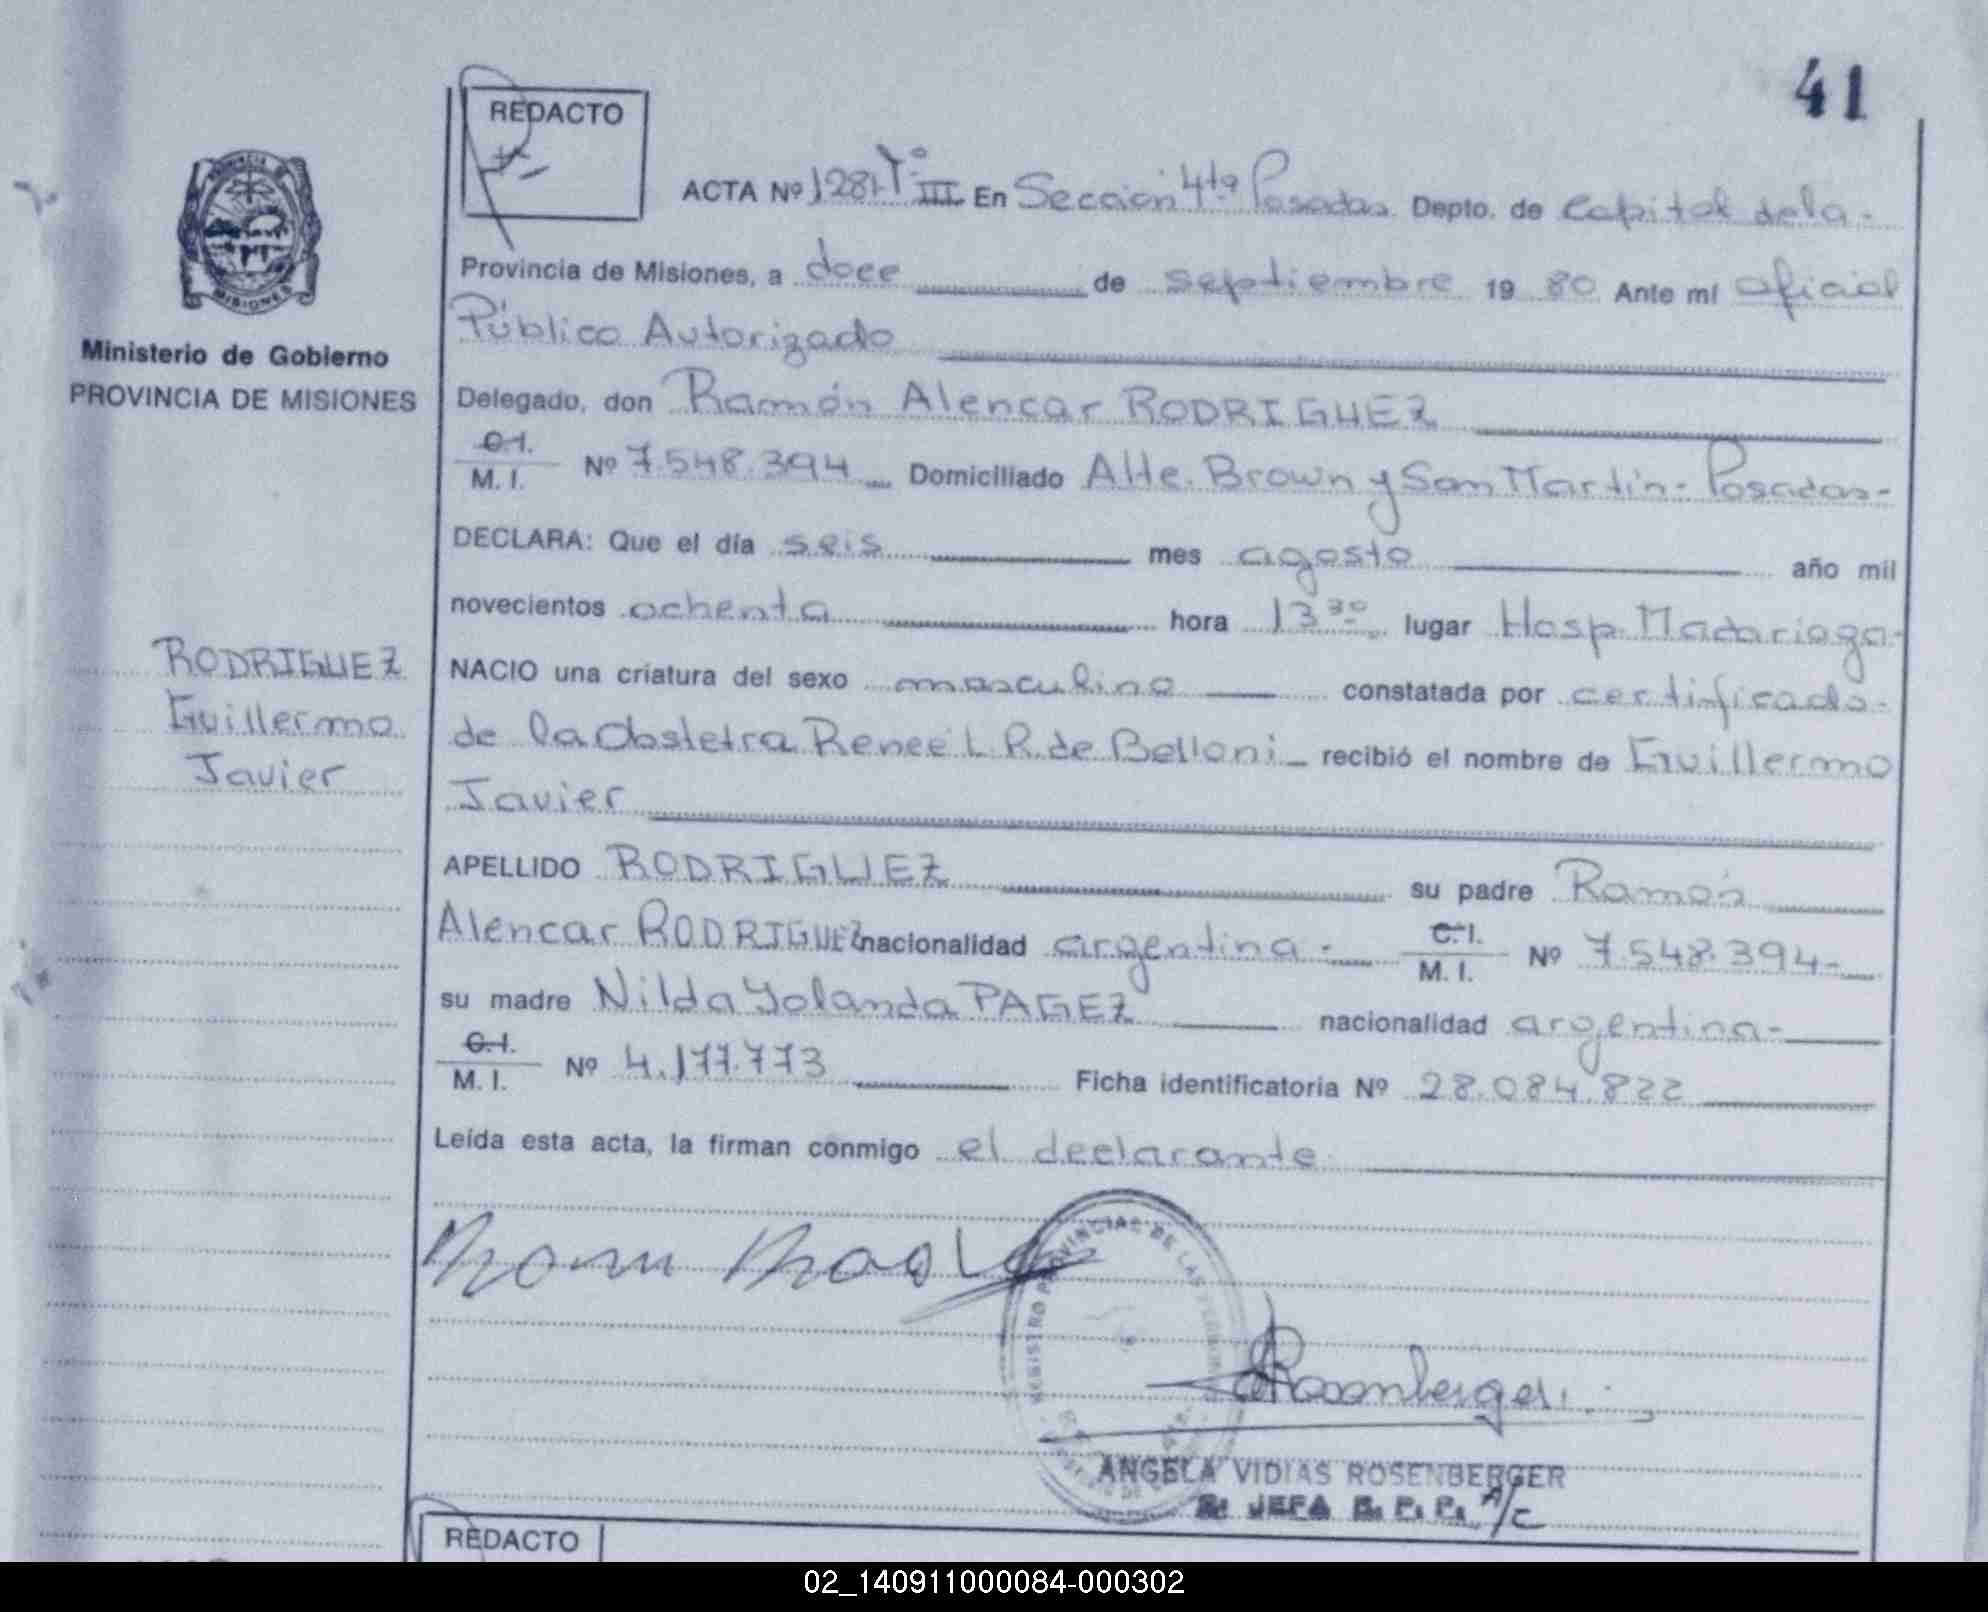 41
REDACTO
ACTA Nº 1281-Tº III En Sección 4ta Posadas Depto. de Capital de la-
Provincia de Misiones, a doce de septiembre 19 80 Ante mi oficial
Público Autorizado
Ministerio de Gobierno
PROVINCIA DE MISIONES
Delegado, don Ramón Alencar RODRIGUEZ
C.I. M.I. Nº 7.548.394 Domiciliado Alte. Brown y San Martín- Posadas-
DECLARA: Que el día seis mes agosto año mil
novecientos ochenta hora 13 30 lugar Hosp. Madariaga-
RODRIGUEZ
Guillermo
Javier
NACIO una criatura del sexo masculino constatada por certificado-
de la Obstetra Renee L. R. de Belloni recibió el nombre de Guillermo
Javier
APELLIDO RODRIGUEZ su padre Ramón
Alencar RODRIGUEZ nacionalidad argentina- C.I. M.I. Nº 7.548.394-
su madre Nilda Yolanda PAGEZ nacionalidad argentina-
C.I. M.I. Nº 4.177.773 Ficha identificatoria Nº 28.084.822
Leída esta acta, la firman conmigo el declarante
REGISTRO PROVINCIAL DE LAS PERSONAS
Rosenberger
ANGELA VIDIAS ROSENBERGER
JEFA R. P. P. A/C
REDACTO
02_140911000084-000302